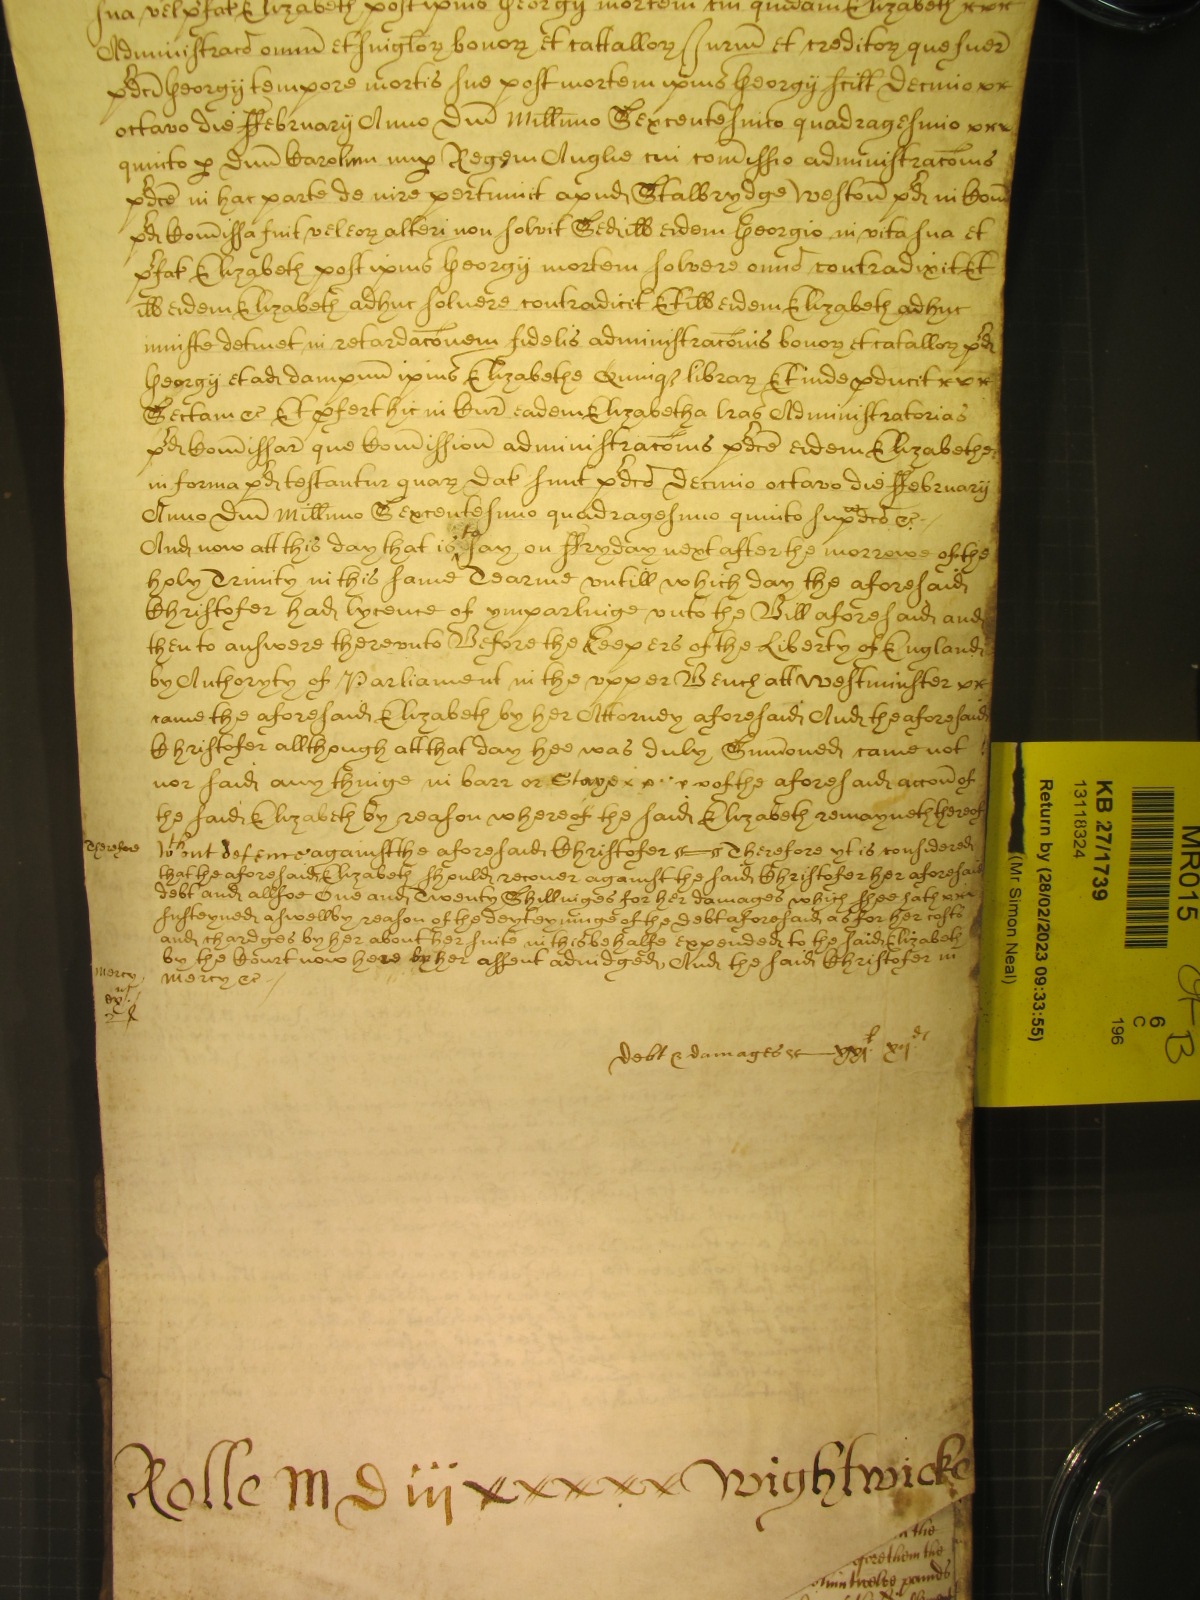 sua vel p̄fat Elizabeth post ip̄ius Georgij mortem cui quidam Elizabeth xxx
Administrac̄o omn̄ et singlor̄ bonor̄ et cattallor̄ Jurm̄ et creditor̄ que fuer̄
p̄dc̄i Georgij tempore mortis sue post mortem ip̄ius Georgij scilt Decimo xx
octavo die ffebruarij Anno Dn̄i Millimo Sexcentesimo quadragesimo xxx
quinto p̱ Dn̄m Karolum nup̱ Regem Anglie cui com̄issio administrac̄onis
p̄dc̄e in hac parte de iure pertinuit apud Stalbrydge Weston̄ p̄d in Kom̄
p̄d Kom̄issa fuit vel eor̄ alteri non solvit Sed ill̄ eidem Georgio in vita sua et
p̄fat Elizabeth post ip̄ius Georgij mortem solvere omn̄o contradixit Et
ill̄ eidem Elizabeth adhuc solvere contradicit Et ill̄ eidem Elizabeth adhuc
iniuste detinet in retardac̄onem fidelis administrac̄onis bonor̄ et catallor̄ p̄d
Georgij et ad dampnū ip̄ius Elizabethe Quinq3 librar̄ Et inde p̱ducit xxx
Sectam &c Et p̱fert hic in Kur̄ eadem Elizabetha lr̄as Administratorias
p̄d Kom̄issar̄ que Kom̄ission̄ administrac̄onis p̄dc̄e eidem Elizabethe
in forma p̄d testantur quar̄ dat sunt p̄dc̄o Decimo octavo die ffebruarij
Anno Dn̄i Millimo Sexcentesimo quadragesimo quinto sup̱adc̄o &c
And now att this day that is to say on ffryday next after the morrowe of the
holy Trinity in this same Tearme untill which day the aforesaid
Khristofer had lycence of ymparlinge unto the Bill aforesaid and
then to answere thereunto Before the Keepers of the Liberty of England
by Authoryty of Parliament in the upper Bench att Westminster xx
came the aforesaid Elizabeth by her Attorney aforesaid And the aforesaid
Khristofer allthough att that day hee was duly Sum̄oned came not
nor said any thinge in barr or Staye x x x x of the aforesaid accōn of
the said Elizabeth by reason whereof the said Elizabeth remayneth thereof
Therefore
wthout defence against the aforesaid Khristofer &c Therefore yt is considered
that the aforesaid Elizabeth should recover against the said Khristofer her aforesaid
debt and allsoe One and Twenty Shillinges for her damages which shee hath xxx
susteyned aswell by reason of the deteyninge of the debt aforesaid as for her costs
and chardges by her about her suite in this behalfe expended to the said Elizabeth
by the Kourt now here by her assent adiudged And the said Khristofer in
Mercy
mercy &c
debt & damages &c xxjl. xijd.
Rolle M D iij xxxxx Wightwicke
in the
gore them the
twelve pounds
MR015
KB 27/1739
13118324
Return by (28/02/2023 09:33:55)
(Mr Simon Neal)
6
C
196